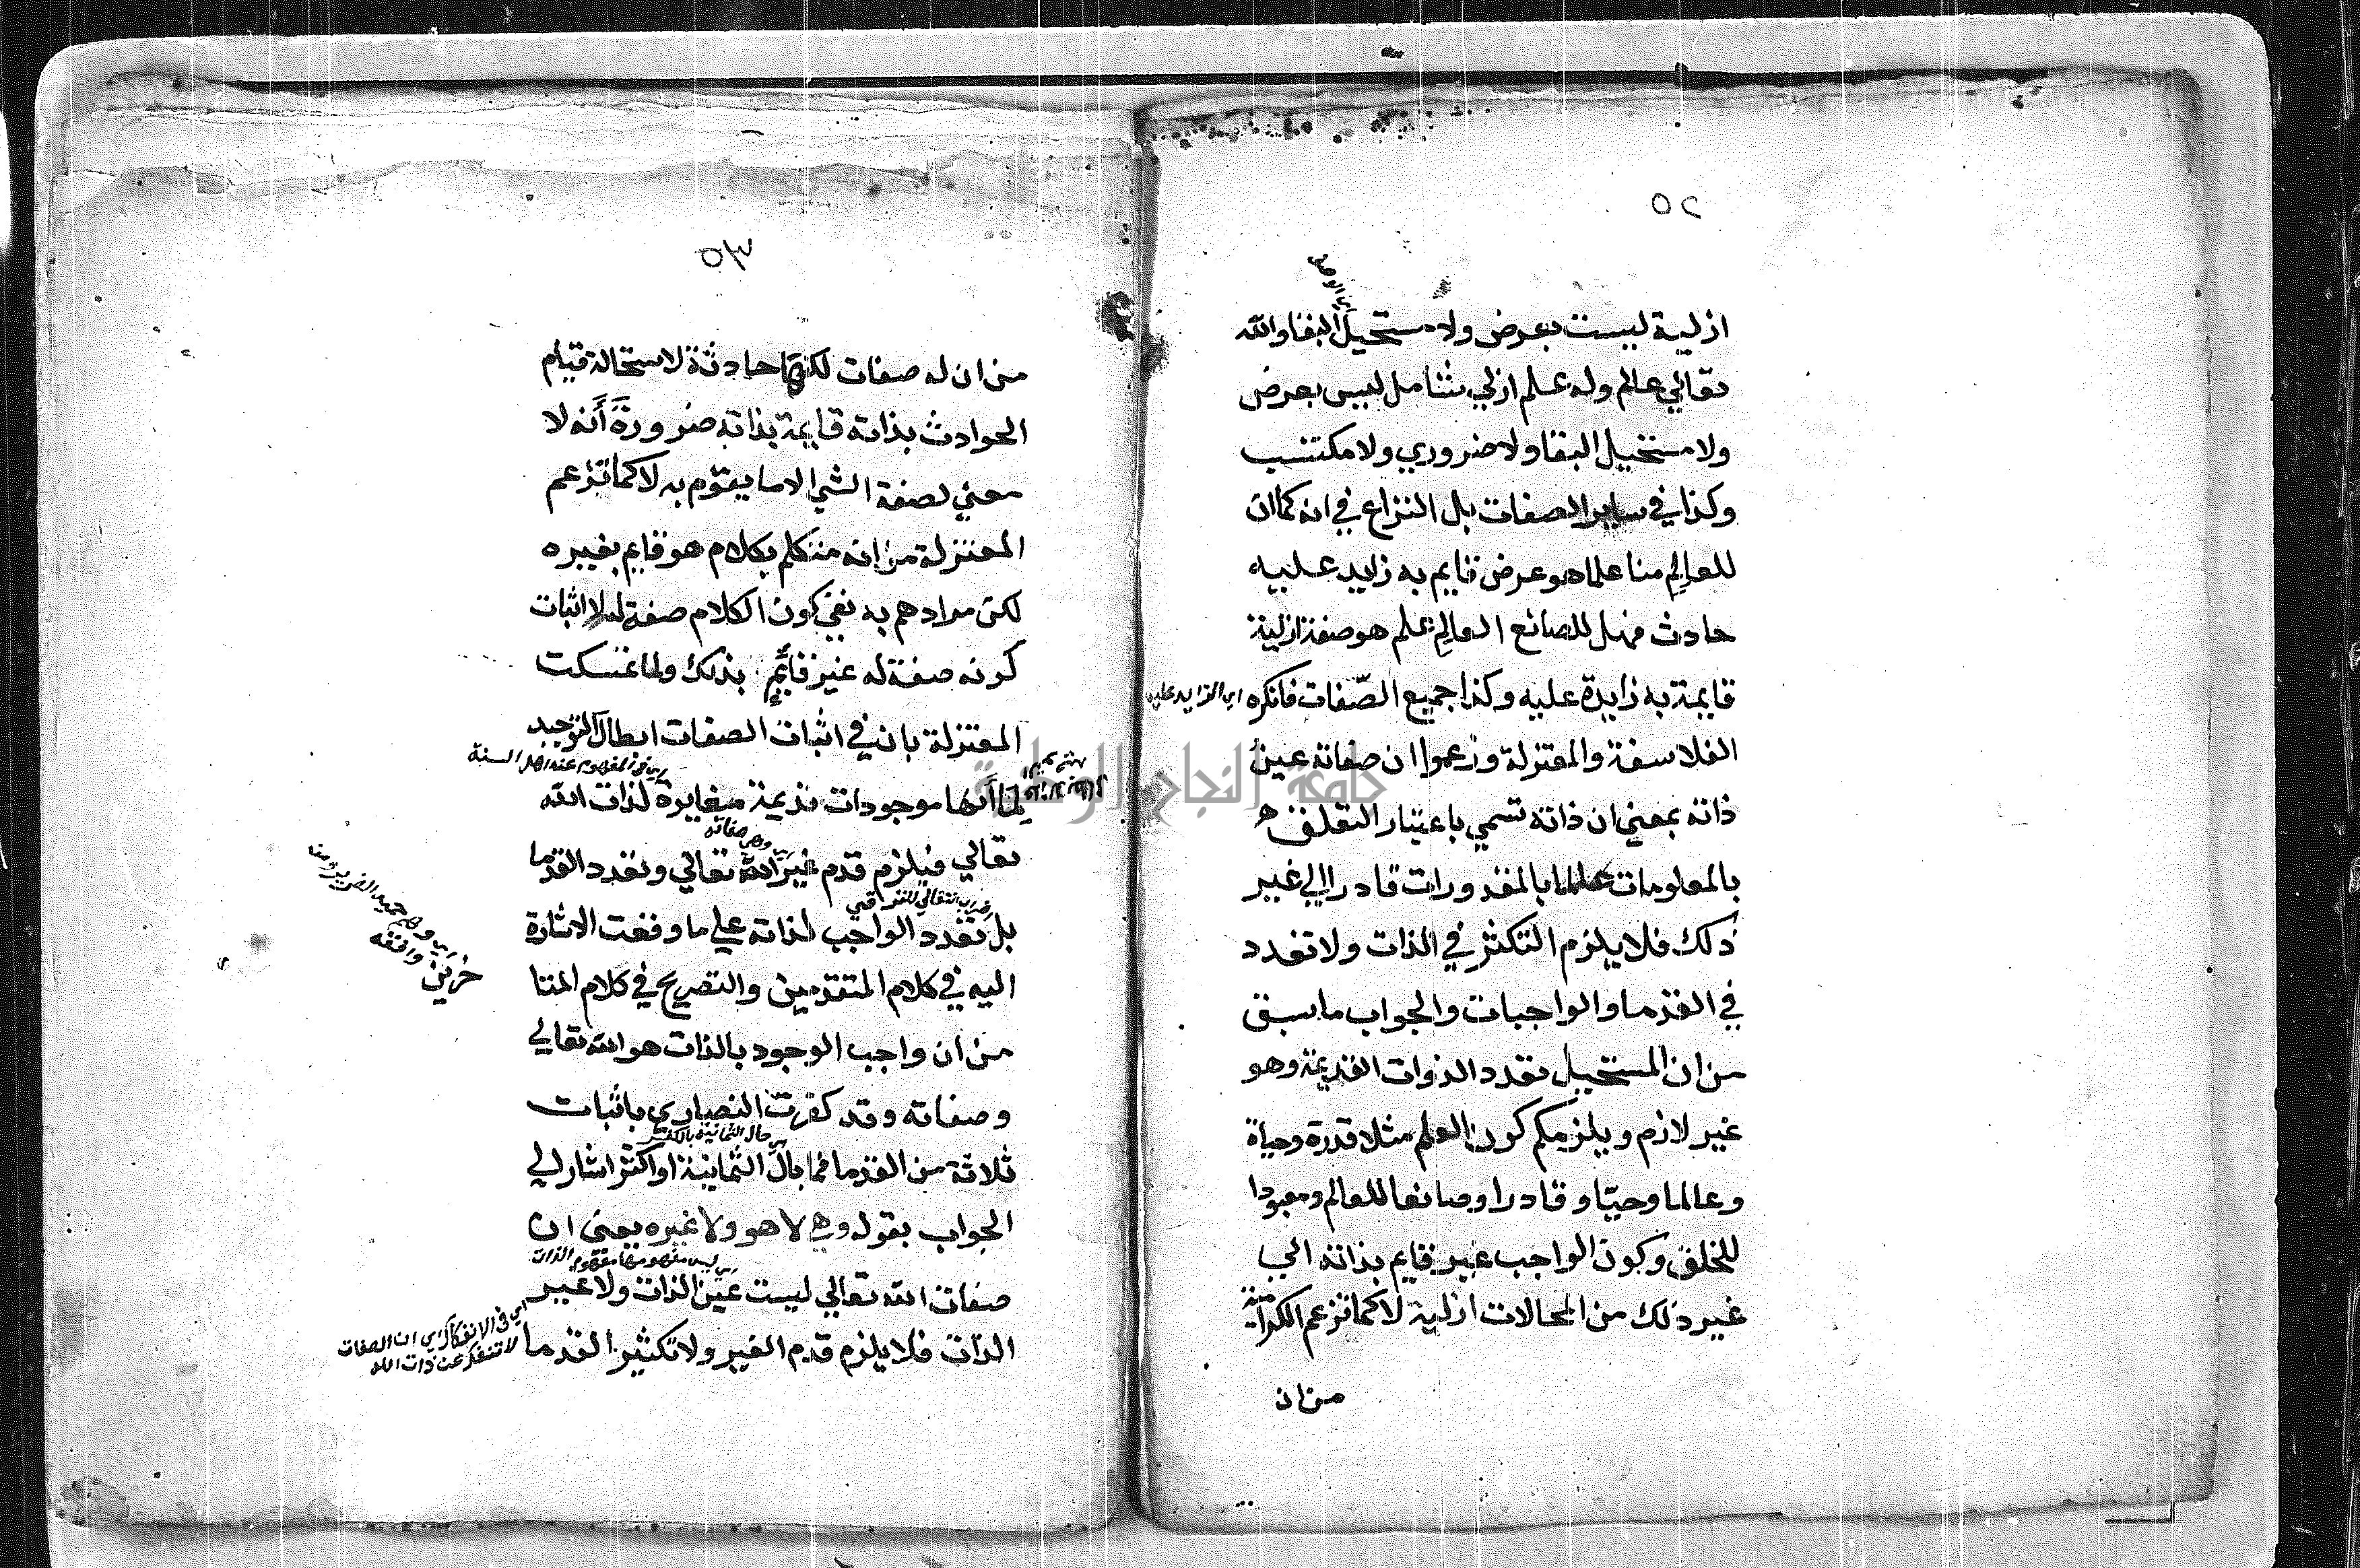 ٥٢
ازلية ليست بعرض ولا مستحيل البقا والله
تعالي عالم وله علم ازلي شامل ليس بعرض
ولا مستحيل البقا ولا ضروري ولا مكتسب
وكذا في ساير الصفات بل النزاع في انه كما ان
للعالِم منا علما هو عرض قايم به زايد عليه
حادث فهل للصانع العالِم علم هو صفة ازلية
قايمة به زايدة عليه وكذا جميع الصّفات فانكره اي الزايد عليه
الفلاسفة والمعتزلة وزعموا ان صفاته عين
ذاته بمعني ان ذاته تسمي باعتبار التعلق
بالمعلومات عالما بالمقدورات قادرا الي غير
ذلك فلا يلزم التكثر في الذات ولا تعدد
في القدما والواجبات والجواب ما سبق
من ان المستحيل تعدد الذوات القديمة وهو
غير لازم ويلزمكم كون العلم مثلا قدرة وحياة
وعالما وحيّا وقادرا وصانعا للعالم ومعبودا
للخلق وكون الواجب غير قايم بذاته الي
غير ذلك من المحالات ازلية لا كما تزعم الكرامية
من ان
٥٣
من ان له صفات لكنها حادثة لاستحالة قيام
الحوادث بذاته قايمة بذاته ضرورة أنه لا
معني لصفة الشي الا ما يقوم به لا كما تزعم
المعتزلة من انه متكلم بكلام هو قايم بغيره
لكن مرادهم به نفي كون الكلام صفة له لا اثبات
كونه صفة له غير قائمٍ بذلك ولما تمسكت
المعتزلة بان في اثبات الصفات ابطال التوحيد
اي في المفهوم عند اهل السنة
لِمَا أنها موجودات قديمة مغايرة لذات الله
اي وهي صفاته
تعالي فيلزم قدم غير الله تعالي وتعدد القدما
بل تعدد الواجب لذاته علي ما وقعت الاشارة
اليه في كلام المتقدمين والتصريح في كلام المتا
خرين
من ان واجب الوجود بالذات هو الله تعالي
وصفاته وقد كفرت النصاري باثبات
اي حال الثمانية بالكفر
ثلاثة من القدما فما بال الثمانية او اكثر اشار الي
الجواب بقوله وهي لا هو ولا غيره يعني ان
اي ليس مفهومها مفهوم الذات
صفات الله تعالي ليست عين الذات ولا غير
الذات فلا يلزم قدم الغير ولا تكثير القدما
اي في الانفكاك اي ان الصفات
لا تنفك عن ذات الله
جامعة النجاح الوطنية